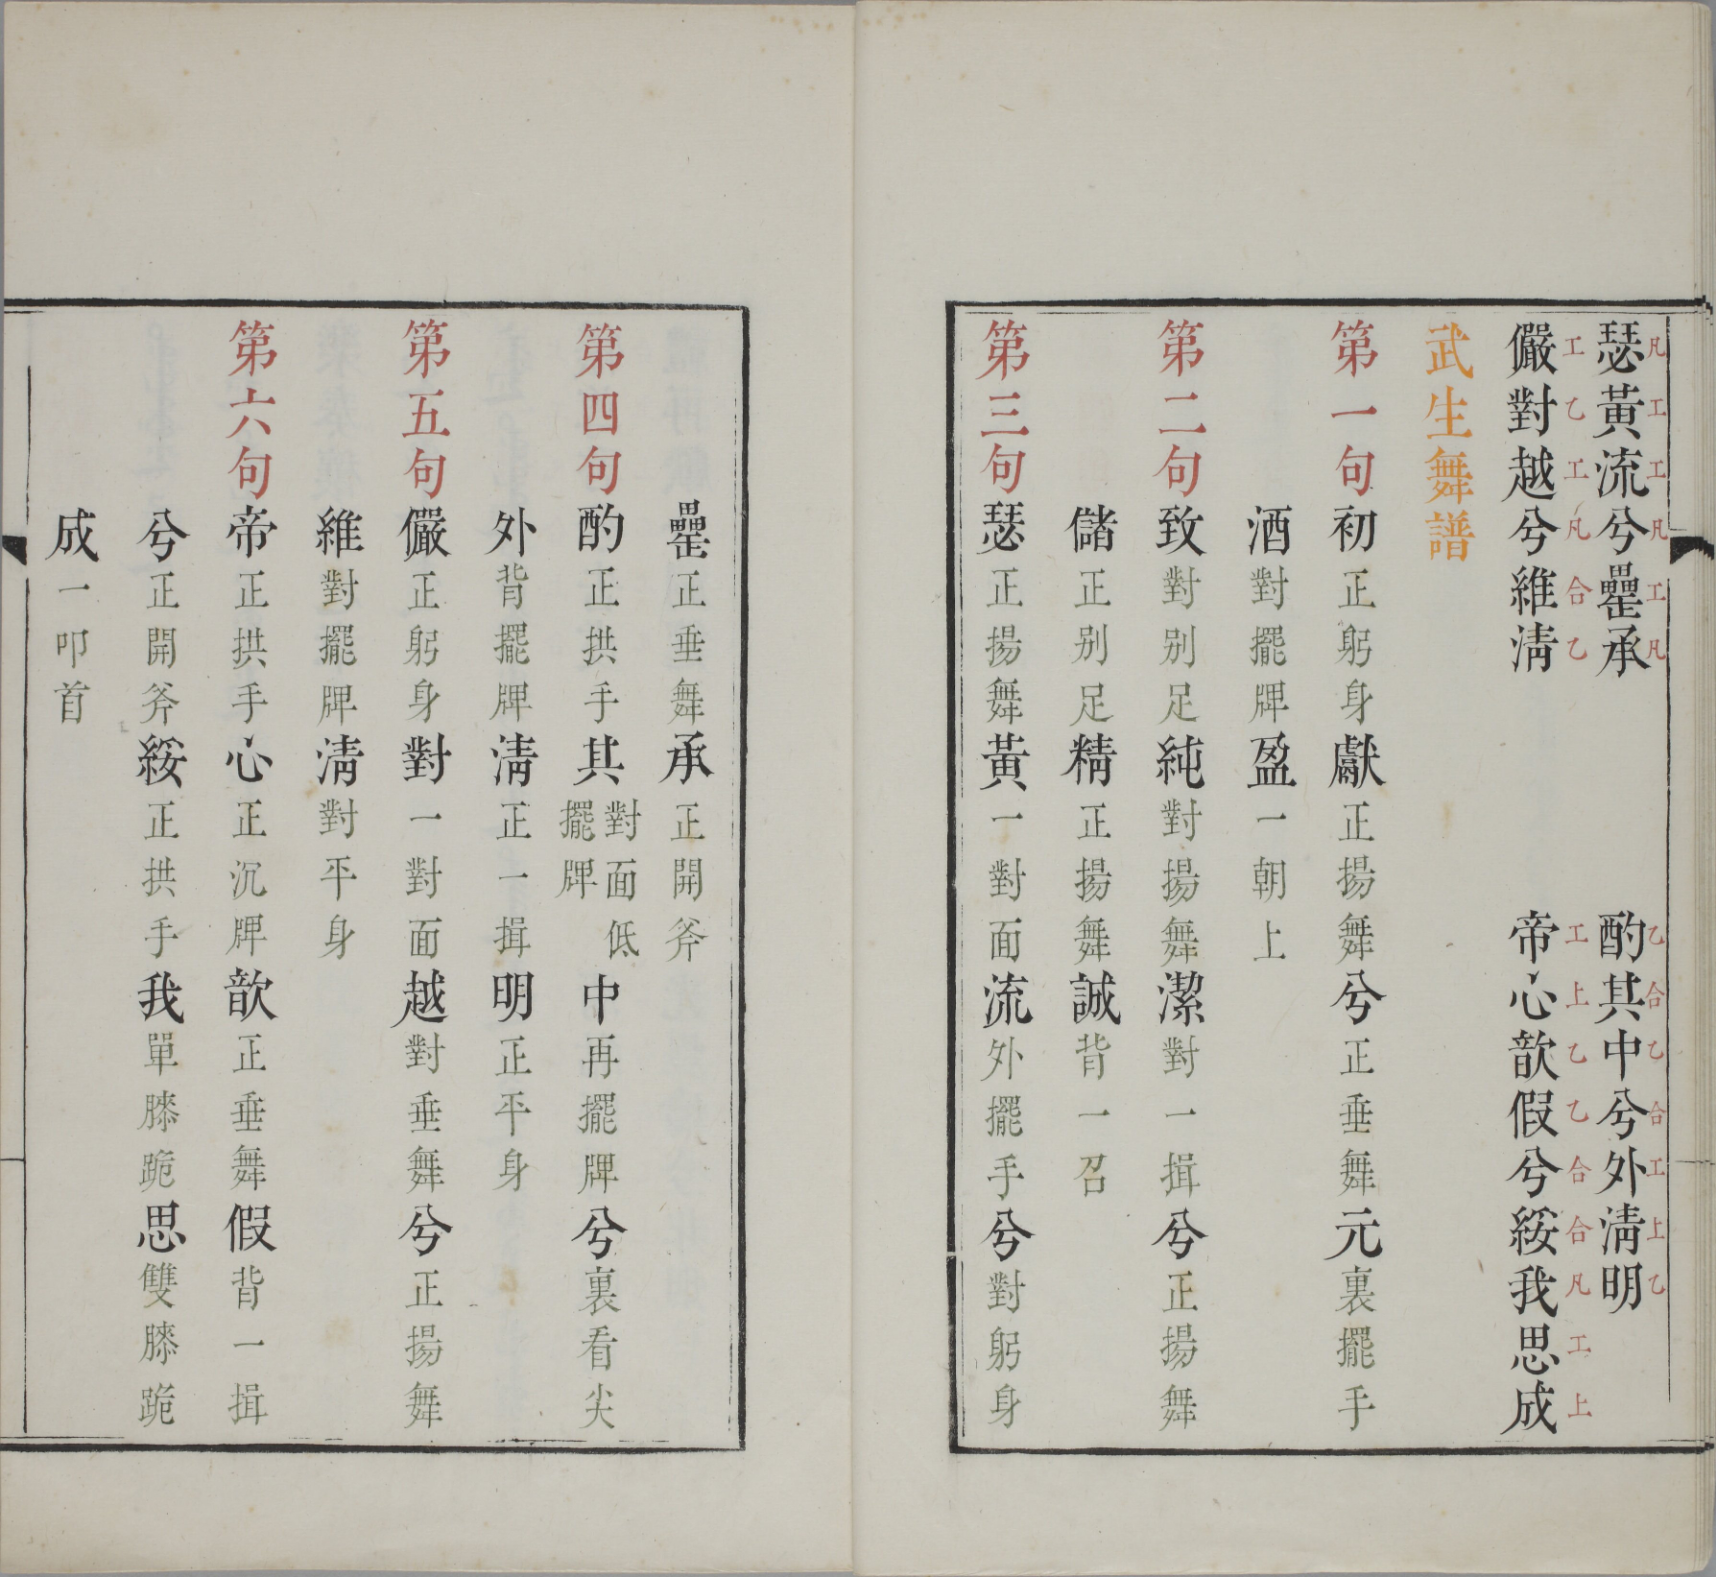 凡工工凡工凡　乙合乙合工上乙
瑟黃流兮罍承　酌其中兮外淸明
工乙工凡合乙　工上乙乙合合凡工上
儼對越兮維淸　帝心歆假兮綏我思成
武生舞譜
第一句初正躬身獻正揚舞兮正垂舞元裏擺手
酒對擺牌盈一朝上
第二句致對别足純對揚舞潔對一揖兮正揚舞
儲正别足精正揚舞誠背一召
第三句瑟正揚舞黃一對面流外擺手兮對躬身
罍正垂舞承正開斧
第四句酌正拱手其對面低擺牌中再擺牌兮裏看尖
外背擺牌淸正一揖明正平身
第五句儼正躬身對一對面越對垂舞兮正揚舞
維對擺牌淸對平身
第六句帝正拱手心正沉牌歆正垂舞假背一揖
兮正開斧綏正拱手我單膝跪思雙膝跪
成一叩首